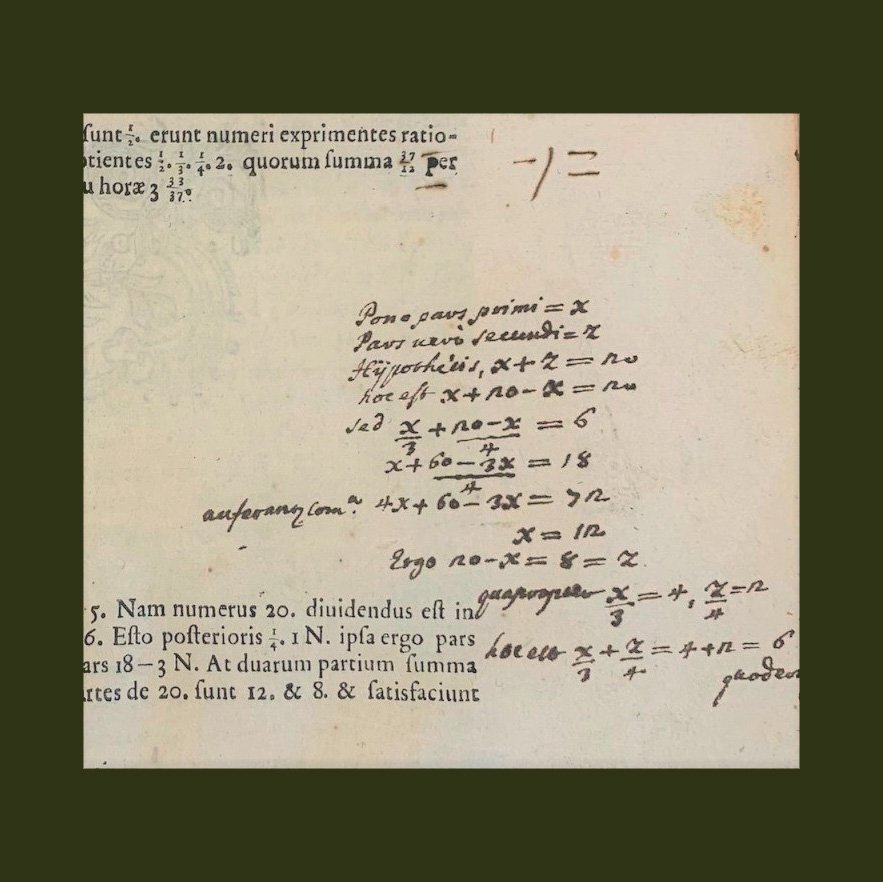 ſunt 1/2. erunt numeri exprimentes ratio-
tientes 1/2. 1/3. 1/4. 2. quorum ſumma 37/12 per
u horæ 3 33/37.
Pono pars primi = x
Pars verò secundi = z
Hÿpothesis, x + z = 20
hoc est x + 20 - x = 20
sed x/3 + (20 - x)/4 = 6
x + (60 - 3x)/4 = 18
auferantur com. 4x + 60 - 3x = 72
x = 12
Ergo 20 - x = 8 = z
quapropter x/3 = 4, z/4 = 2
5. Nam numerus 20. diuidendus eſt in
6. Eſto poſterioris 1/4. 1 N. ipſa ergo pars
hoc est x/3 + z/4 = 4 + 2 = 6
ars 18 — 3 N. At duarum partium ſumma
quod
artes de 20. ſunt 12. & 8. & ſatisfaciunt